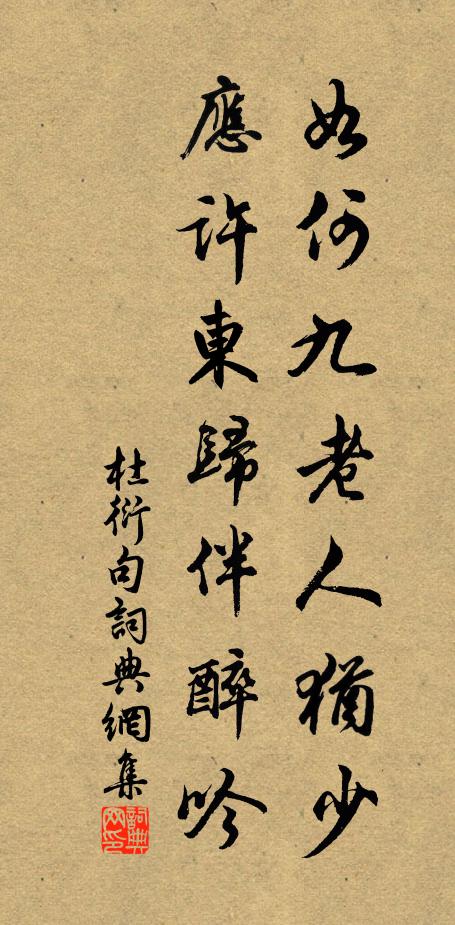 如何九老人猶少
應許東歸伴醉吟
杜衍句詞典網集
詞典网印